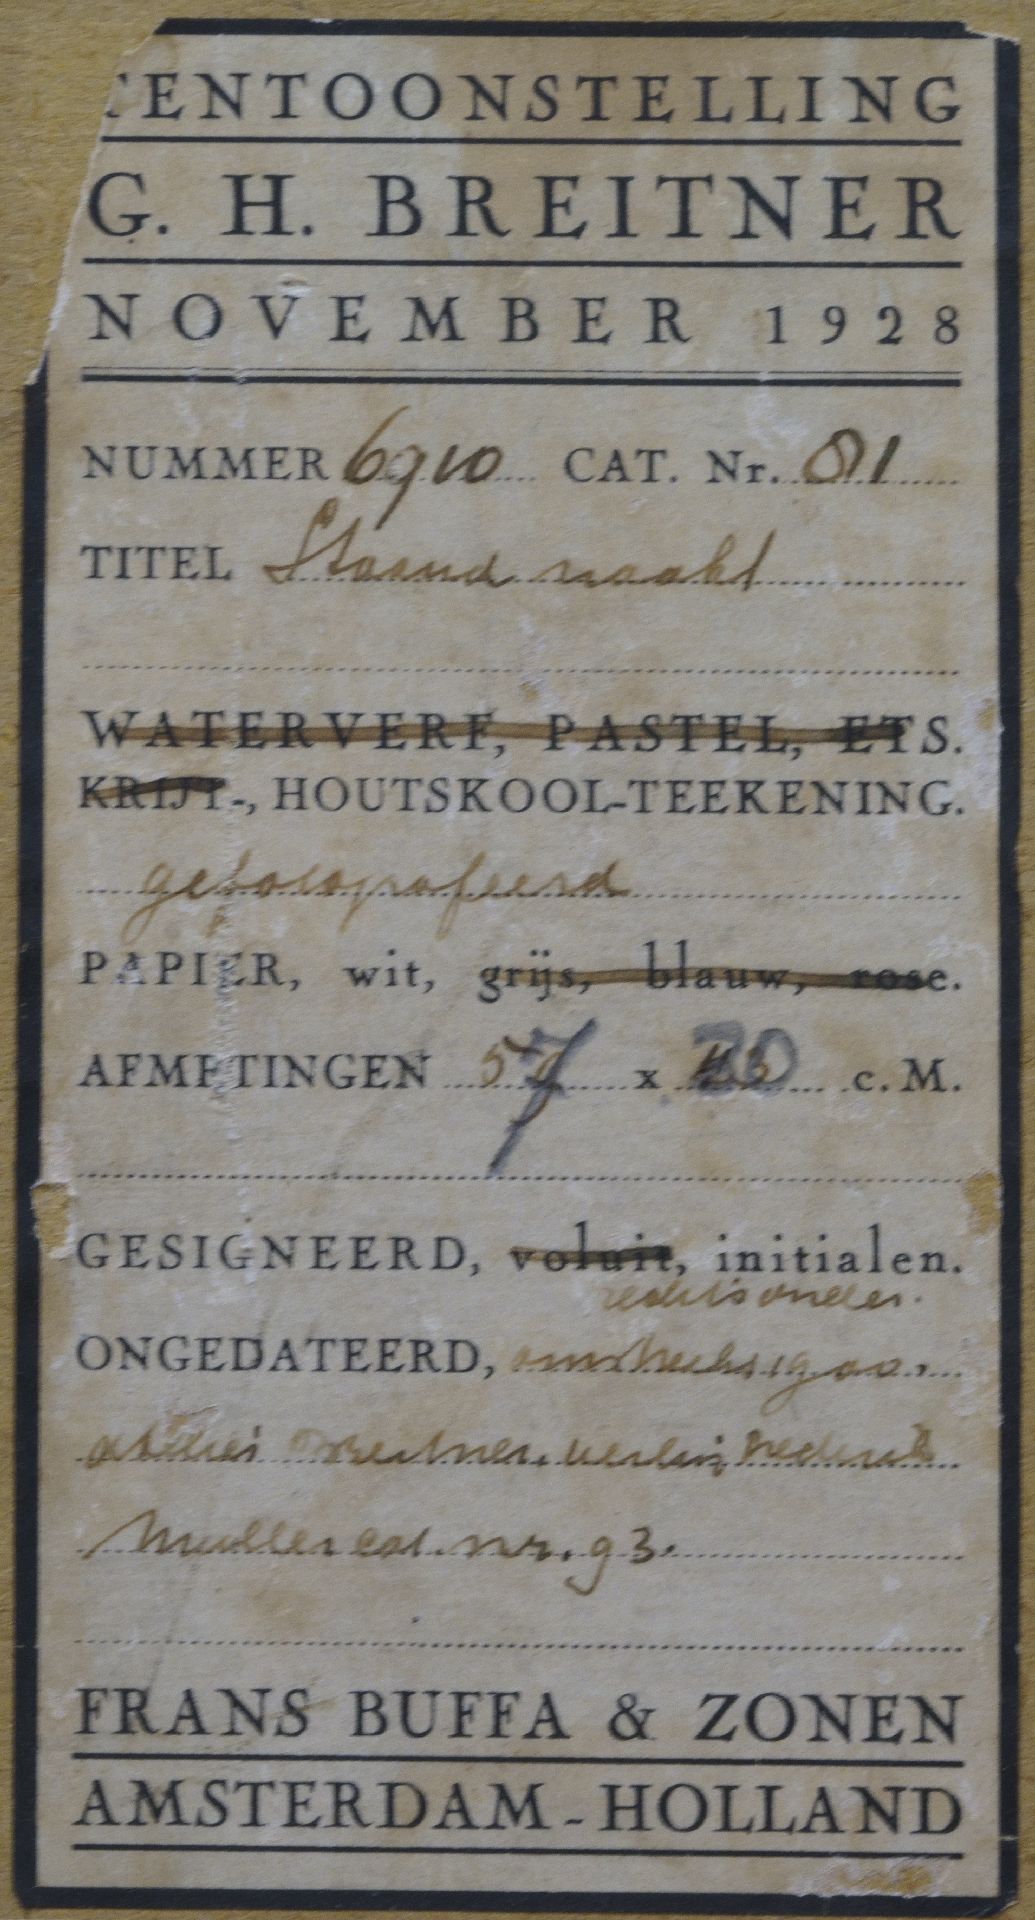 TENTOONSTELLING
G. H. BREITNER
NOVEMBER 1928
NUMMER 6910 CAT. Nr. 81
TITEL Staand naakt
WATERVERF, PASTEL, ETS.
KRIJT-, HOUTSKOOL-TEEKENING.
gefotografeerd
PAPIER, wit, grijs, blauw, rose.
AFMETINGEN 57 x 30 c.M.
GESIGNEERD, voluit, initialen.
rechts onder.
ONGEDATEERD, omstreeks 1900.
atelier Breitner, veiling Frederik
Muller cat. nr. 93.
FRANS BUFFA & ZONEN
AMSTERDAM-HOLLAND